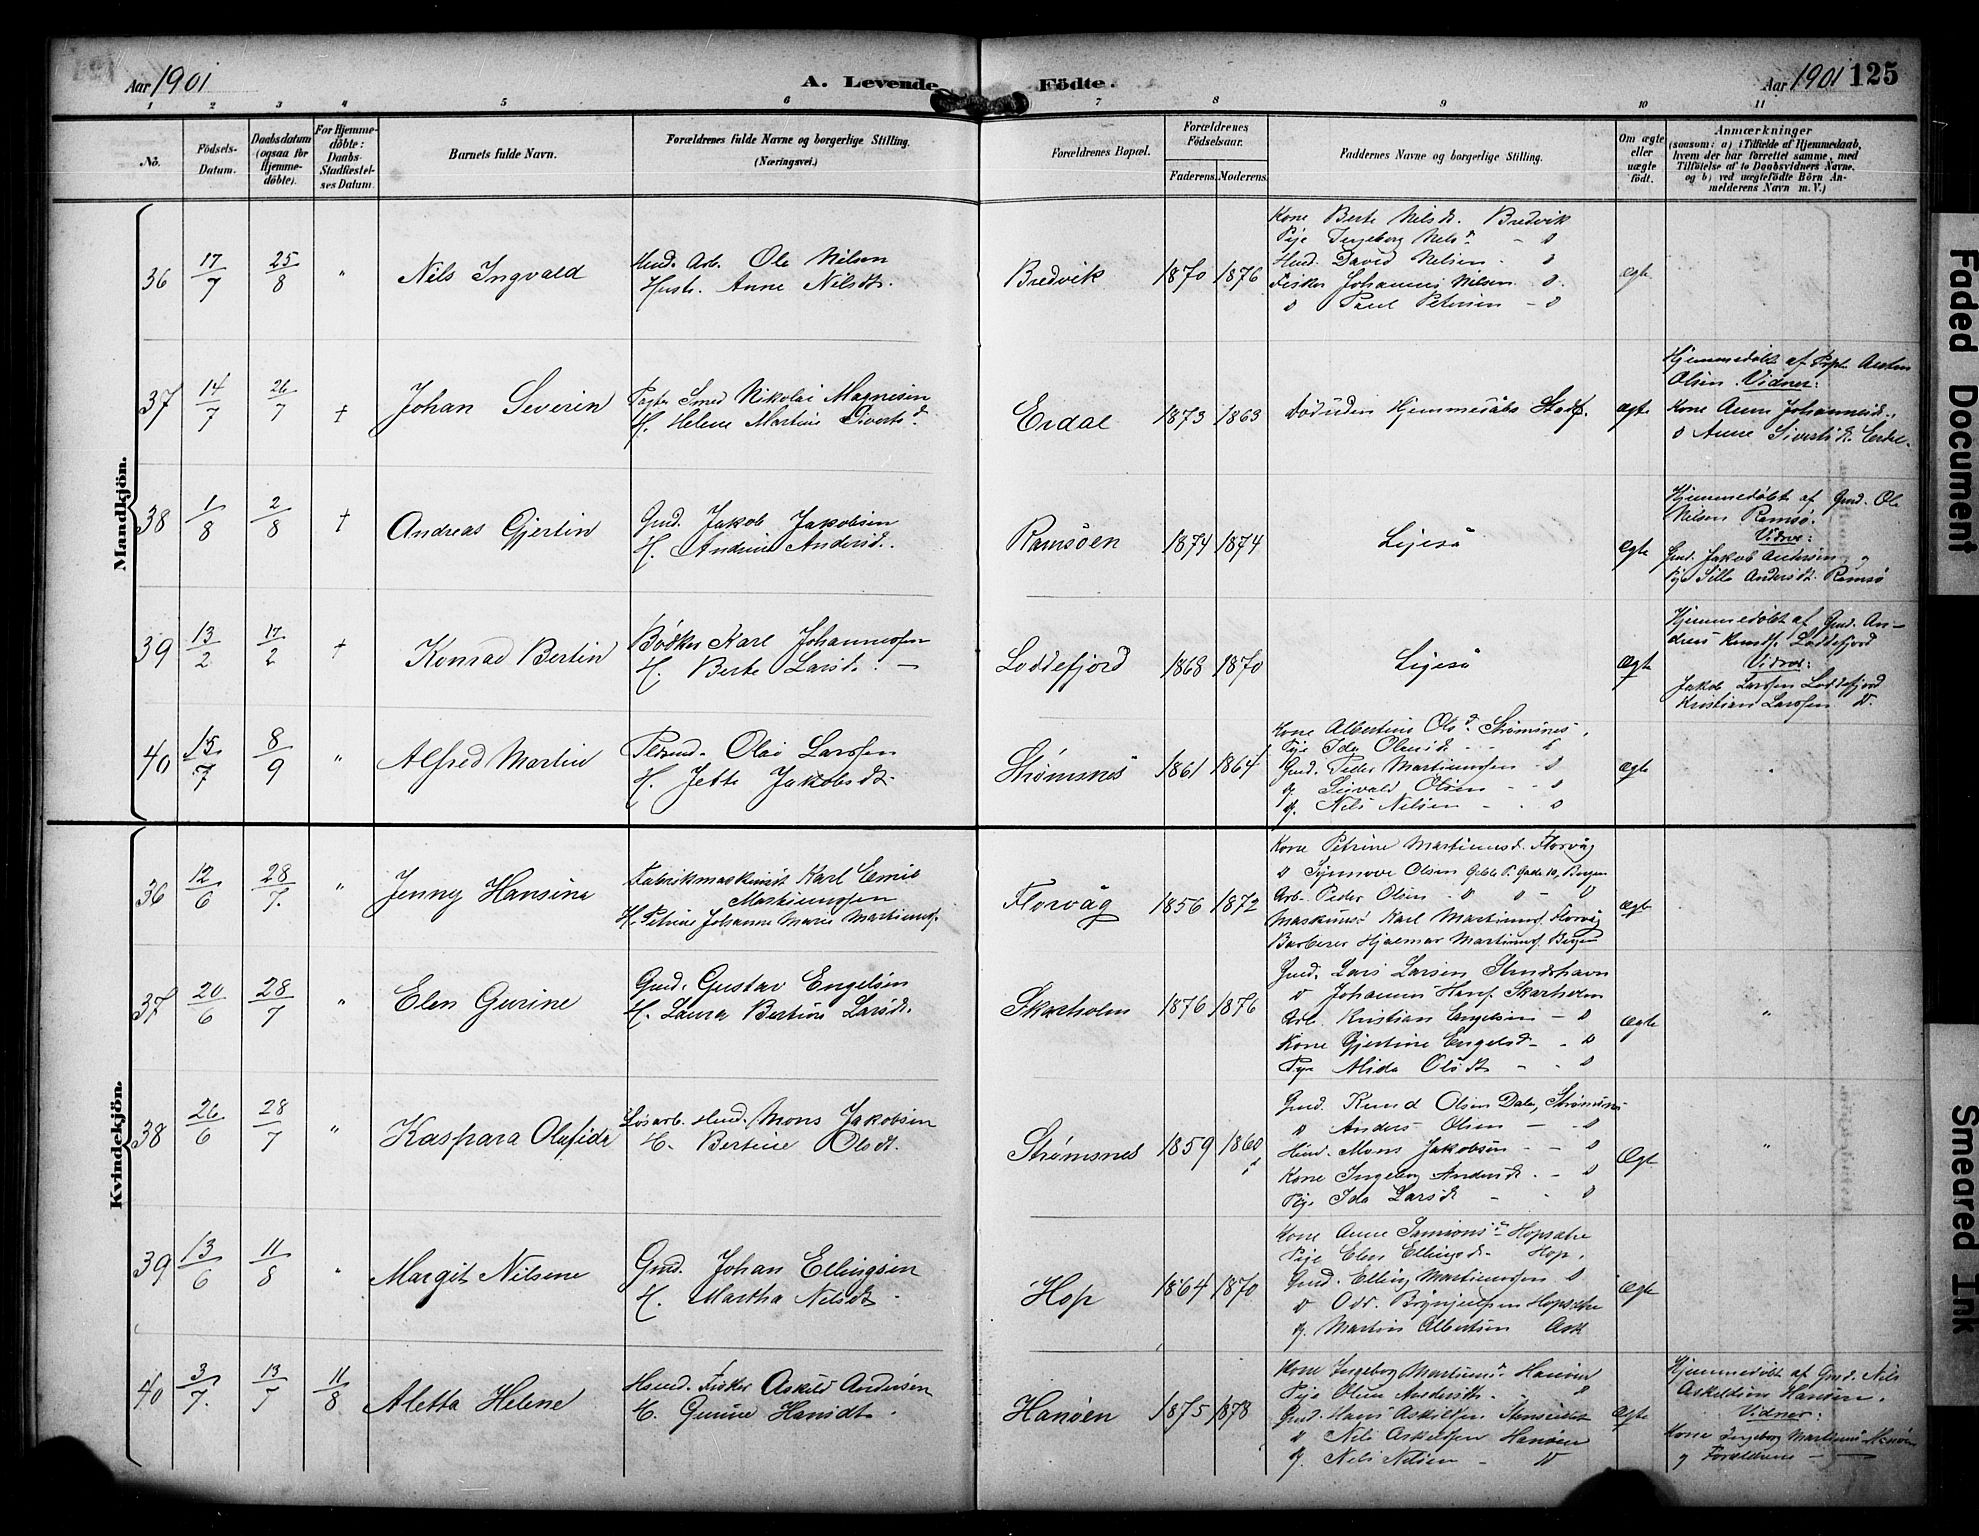 Aar 1901
A. Levende Födte.
Aar 1901 125
1 2 3 4 5 6 7 8 9 10 11
No.
Födsels-
Datum.
Daabsdatum
(ogsaa for
Hjemme-
döbte).
For Hjemme-
döbte:
Daabs-
Stadfestel-
ses Datum.
Barnets fulde Navn.
Forældrenes fulde Navne og borgerlige Stilling.
(Næringsvei.)
Forældrenes Bopæl.
Forældrenes
Födselsaar.
Faderens. Moderens.
Faddernes Navne og borgerlige Stilling.
Om ægte
eller
uægte
födt.
Anmærkninger
(saasom: a) i Tilfælde af Hjemmedaab,
hvem der har forrettet samme, med
Tilföielse af to Daabsvidners Navne,
og b) ved uægtefödte Börn An-
melderens Navn m. V.)
Mandkjön.
36 17/7 25/8 " Nils Ingvald
Husm. Arb. Ole Nilsen
Hustr. Anne Nilsdt.
Bredvik 1870 1876
Kone Berte Nilsdt. Bredvik
Pige Ingeborg Nelsd - D
Husm. David Nelsen - D
Fisker Johannes Nilsen D
D Paul Petersen - D
ægte
37 14/7 26/7 † Johan Severin
Smed Nikolai Magnesen
H. Helene Martine Siverts d
Erdal 1873 1863
Död uden Hjemmedaabs Stadf.
ægte
Hjemmedöbt af
Olsen. Vidner:
Kone Anne Johannesd.
D Anne Sivertsd. Erdal.
38 1/8 2/8 † Andreas Gjertin
Gmd. Jakob Jakobsen
H. Andrine Andersd.
Ramsöen 1874 1874
Ligesö
Ægte
Hjemmedöbt af Gmd. Ole
Nilsen Ramsö.
Vidner:
Gmd. Jakob Andersen og
Pige Sille Andersdt. Ramsö
39 13/2 17/2 † Konrad Bertin
Bödker Karl Johannessen
H. Berte Larsdt. -
Loddefjord 1868 1870
Ligesö
Ægte
Hjemmedöbt af Gmd. An-
dreas Knudsen Loddefjord
Vidner:
Jakob Larssen Loddefjord
Kristian Larssen D.
40 15/7 8/9 " Alfred Martin
Olai Larssen
H. Jette Jakobsdt.
Strømsnes 1861 1864
Kone Albertine Olsd Strømsnes.
Pige Ida Olensdt. - D
Gmd. Peder Martinussen - D
g. Sigvald Olsen - - D
g. Nils Nilsen - - D
Ægte "
Kvindekjön.
36 12/6 28/7. " Jenny Hansine
Fabrikmaskinist Karl Emil
Martinussen
H. Petrine Johanne Marie Martinusd.
Florvåg 1856 1872
Kone Petrine Martinusd. Florvåg
D Synnove Olsen Gade 10, Bergen
Arb. Peder Olsen - D " - D
Maskinist Karl Martinus. Florvåg
Barberer Hjalmar Martinus. Bergen
Ægte
37 20/6 28/7 " Elen Gurine
Gmd. Gustav Engelsen
H. Laura Bertine Larsdt.
Skarholm 1876 1876
Gmd. Lars Larsen Strudshavn
D Johannes Hans. Skarholm
Arb. Kristian Engelsen - D
Kone Gjertine Engelsd - - D
Pige Alida Olsdt - - D
Ægte "
38 26/6 28/7 " Kaspara Olufida
Løsarb. Husmd. Mons Jakobsen
H. Bertine Olsdt.
Strømsnes 1859 1860
Gmd. Knud Olsen Dale, Strømsnes
D Anders Olsen - - D
Husmd. Mons Jakobsen - - D
Kone Ingeborg Andersdt. - D
Pige Ida Larsdt - - D
Ægte "
39 13/6 11/8 " Margit Nilsene
Gmd. Johan Ellingsen
H. Martha Nilsdt.
Hop 1864 1870
Kone Anne Hopsatre
Pige Elen Ellingsdt. Hop.
Gmd. Elling Martinussen D
D Odr. Hopsatre
g. Martin Albertsen Ask
Ægte
40 3/7. 13/7 11/8 Aletta Helene
Husmd. Fisker Askild Andersen
H. Gurine Hansdt.
Hanöen 1875 1878
Kone Ingeborg Martinusd Hanöen
Pige Oline Andersdt. - D
Gmd. Hans Askildsen
D Nils Askildsen Hanöen
g. Nils Nilsen - D
Ægte
Hjemmedöbt af Gmd. Nils
Askeldsen Hanöen.
Vidner:
Kone Ingeborg Martinus Hanöen
og Forældrene -
Faded Document
Smeared Ink